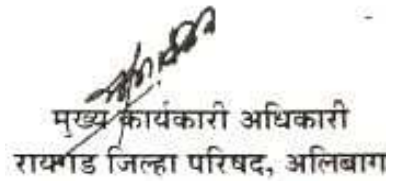 मुख्य कार्यकारी अधिकारी
रायगड जिल्हा परिषद, अलिबाग